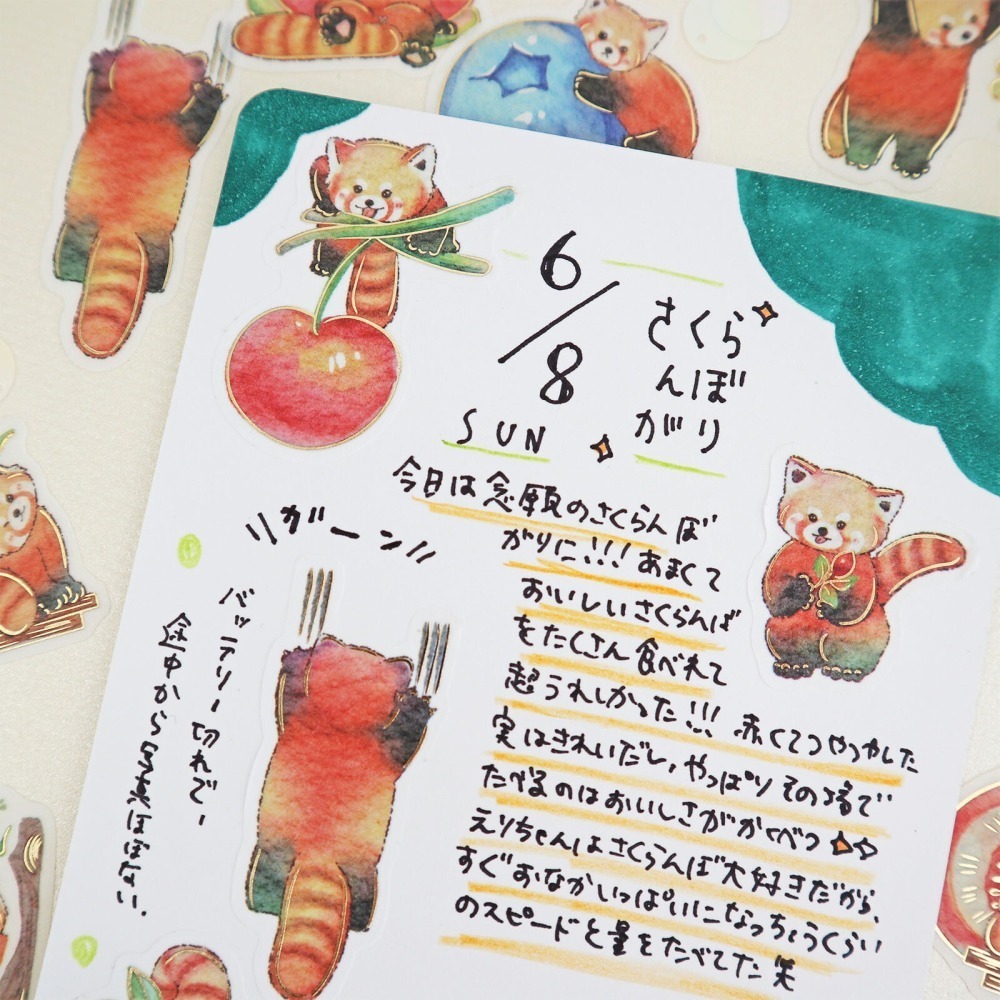 6/8
SUN
さくら
んぼ
がり
今日は念願のさくらんぼ
がりに!!!あまくて
おいしいさくらんぼ
をたくさん食べれて
超うれしかった!!!赤くてつやつやした
実はきれいだし,やっぱりその場で
たべるのはおいしさがかくべつ
えりちゃんはさくらんぼ大好きだから、
すぐおなかいっぱいになっちゃうくらい
のスピードと量をたべてた笑
ガーン
バッテリー切れで、
途中から写真ほぼない.